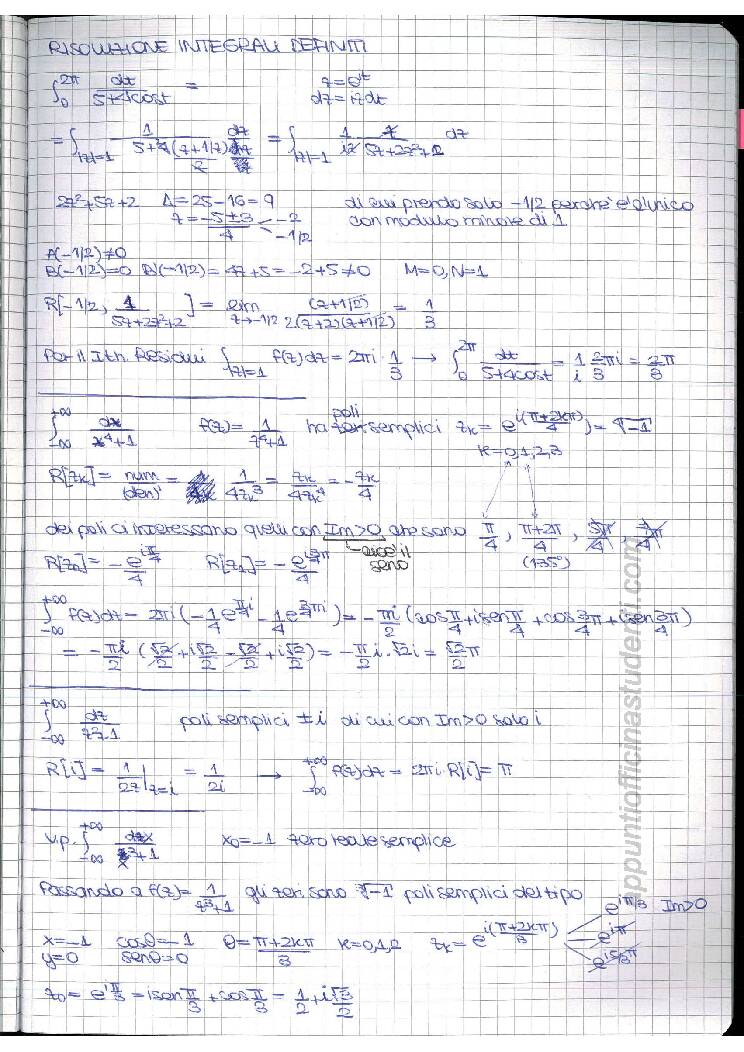 RISOLUZIONE INTEGRALI DEFINITI
∫₀^2π dt/(5+4cost) =     z=e^it
dz=izdt
= ∫_|z|=1 1/(5+4(z+1/z)/2) dz/iz = ∫_|z|=1 1/iz z/(5z+2z²+2) dz
2z²+5z+2   Δ=25-16=9   di cui prendo solo -1/2 perchè è l'unico
z = (-5±3)/4   -2   -1/2   con modulo minore di 1
A(-1/2)≠0
B(-1/2)=0   B'(-1/2)=4z+5=-2+5≠0   M=0, N=1
R[-1/2, 1/(5z+2z²+2)] = lim z→-1/2 (z+1/2)/(2(z+2)(z+1/2)) = 1/3
Per il I th. Residui ∫_|z|=1 f(z)dz = 2πi·1/3 → ∫₀^2π dt/(5+4cost) = 1/i 2/3πi = 2π/3
∫_-∞^+∞ dx/(x⁴+1)   f(z)= 1/(z⁴+1)   ha poli semplici z_k = e^(i(π+2kπ)/4) = ⁴√-1
k=0,1,2,3
R[z_k] = num/(den)' = 1/(4z_k³) = z_k/(4z_k⁴) = -z_k/4
dei poli ci interessano quelli con Im>0 che sono π/4, (π+2π)/4, 5π/4, 7π/4
cioè il seno   (135°)
R[z₀] = -e^(iπ/4)/4   R[z₁] = -e^(i3/4π)/4
∫_-∞^+∞ f(z)dz = 2πi(-1/4 e^(π/4 i) -1/4 e^(3/4πi)) = -πi/2 (cosπ/4 + isenπ/4 + cos3/4π + isen3π/4)
= -πi/2 (√2/2 + i√2/2 - √2/2 + i√2/2) = -π/2 i·√2i = √2/2 π
∫_-∞^+∞ dz/(z²-1)   poli semplici ±i di cui con Im>0 solo i
R[i] = 1/2z |z=i = 1/2i → ∫_-∞^+∞ f(z)dz = 2πi·R[i] = π
v.p. ∫_-∞^+∞ dx/(x³+1)   x₀=-1 zero reale semplice
Passando a f(z)= 1/(z³+1) gli zeri sono ³√-1 poli semplici del tipo
x=-1   cosθ=-1   θ=(π+2kπ)/3   k=0,1,2   z_k = e^(i(π+2kπ)/3)   e^(iπ/3) Im>0
y=0   senθ=0   e^iπ
e^(i5/3π)
z₀ = e^(iπ/3) = isenπ/3 + cosπ/3 = 1/2 + i√3/2
appuntiofficinastudenti.com